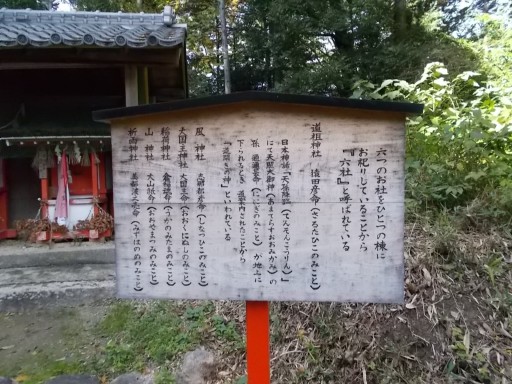 六つのお社をひとつの棟に
お祀りしていることから
『六社』と呼ばれている
道祖神社 猿田彦命(さるたひこのみこと)
日本神話「天孫降臨(てんそんこうりん)」
にて天照大御神(あまてらすおおみかみ)の
孫 邇邇芸命(ににぎのみこと)が地上に
下られるとき 道案内されたことから
『道開きの神』といわれている
風 神社 志那都彦命(しなつひこのみこと)
大国主神社 大国主命(おおくにぬしのみこと)
稲荷神社 倉稲魂命(うかのみたまのみこと)
山 神社 大山祇命(おおやまつみのみこと)
祈雨神社 美都波之売命(みずはのめのみこと)